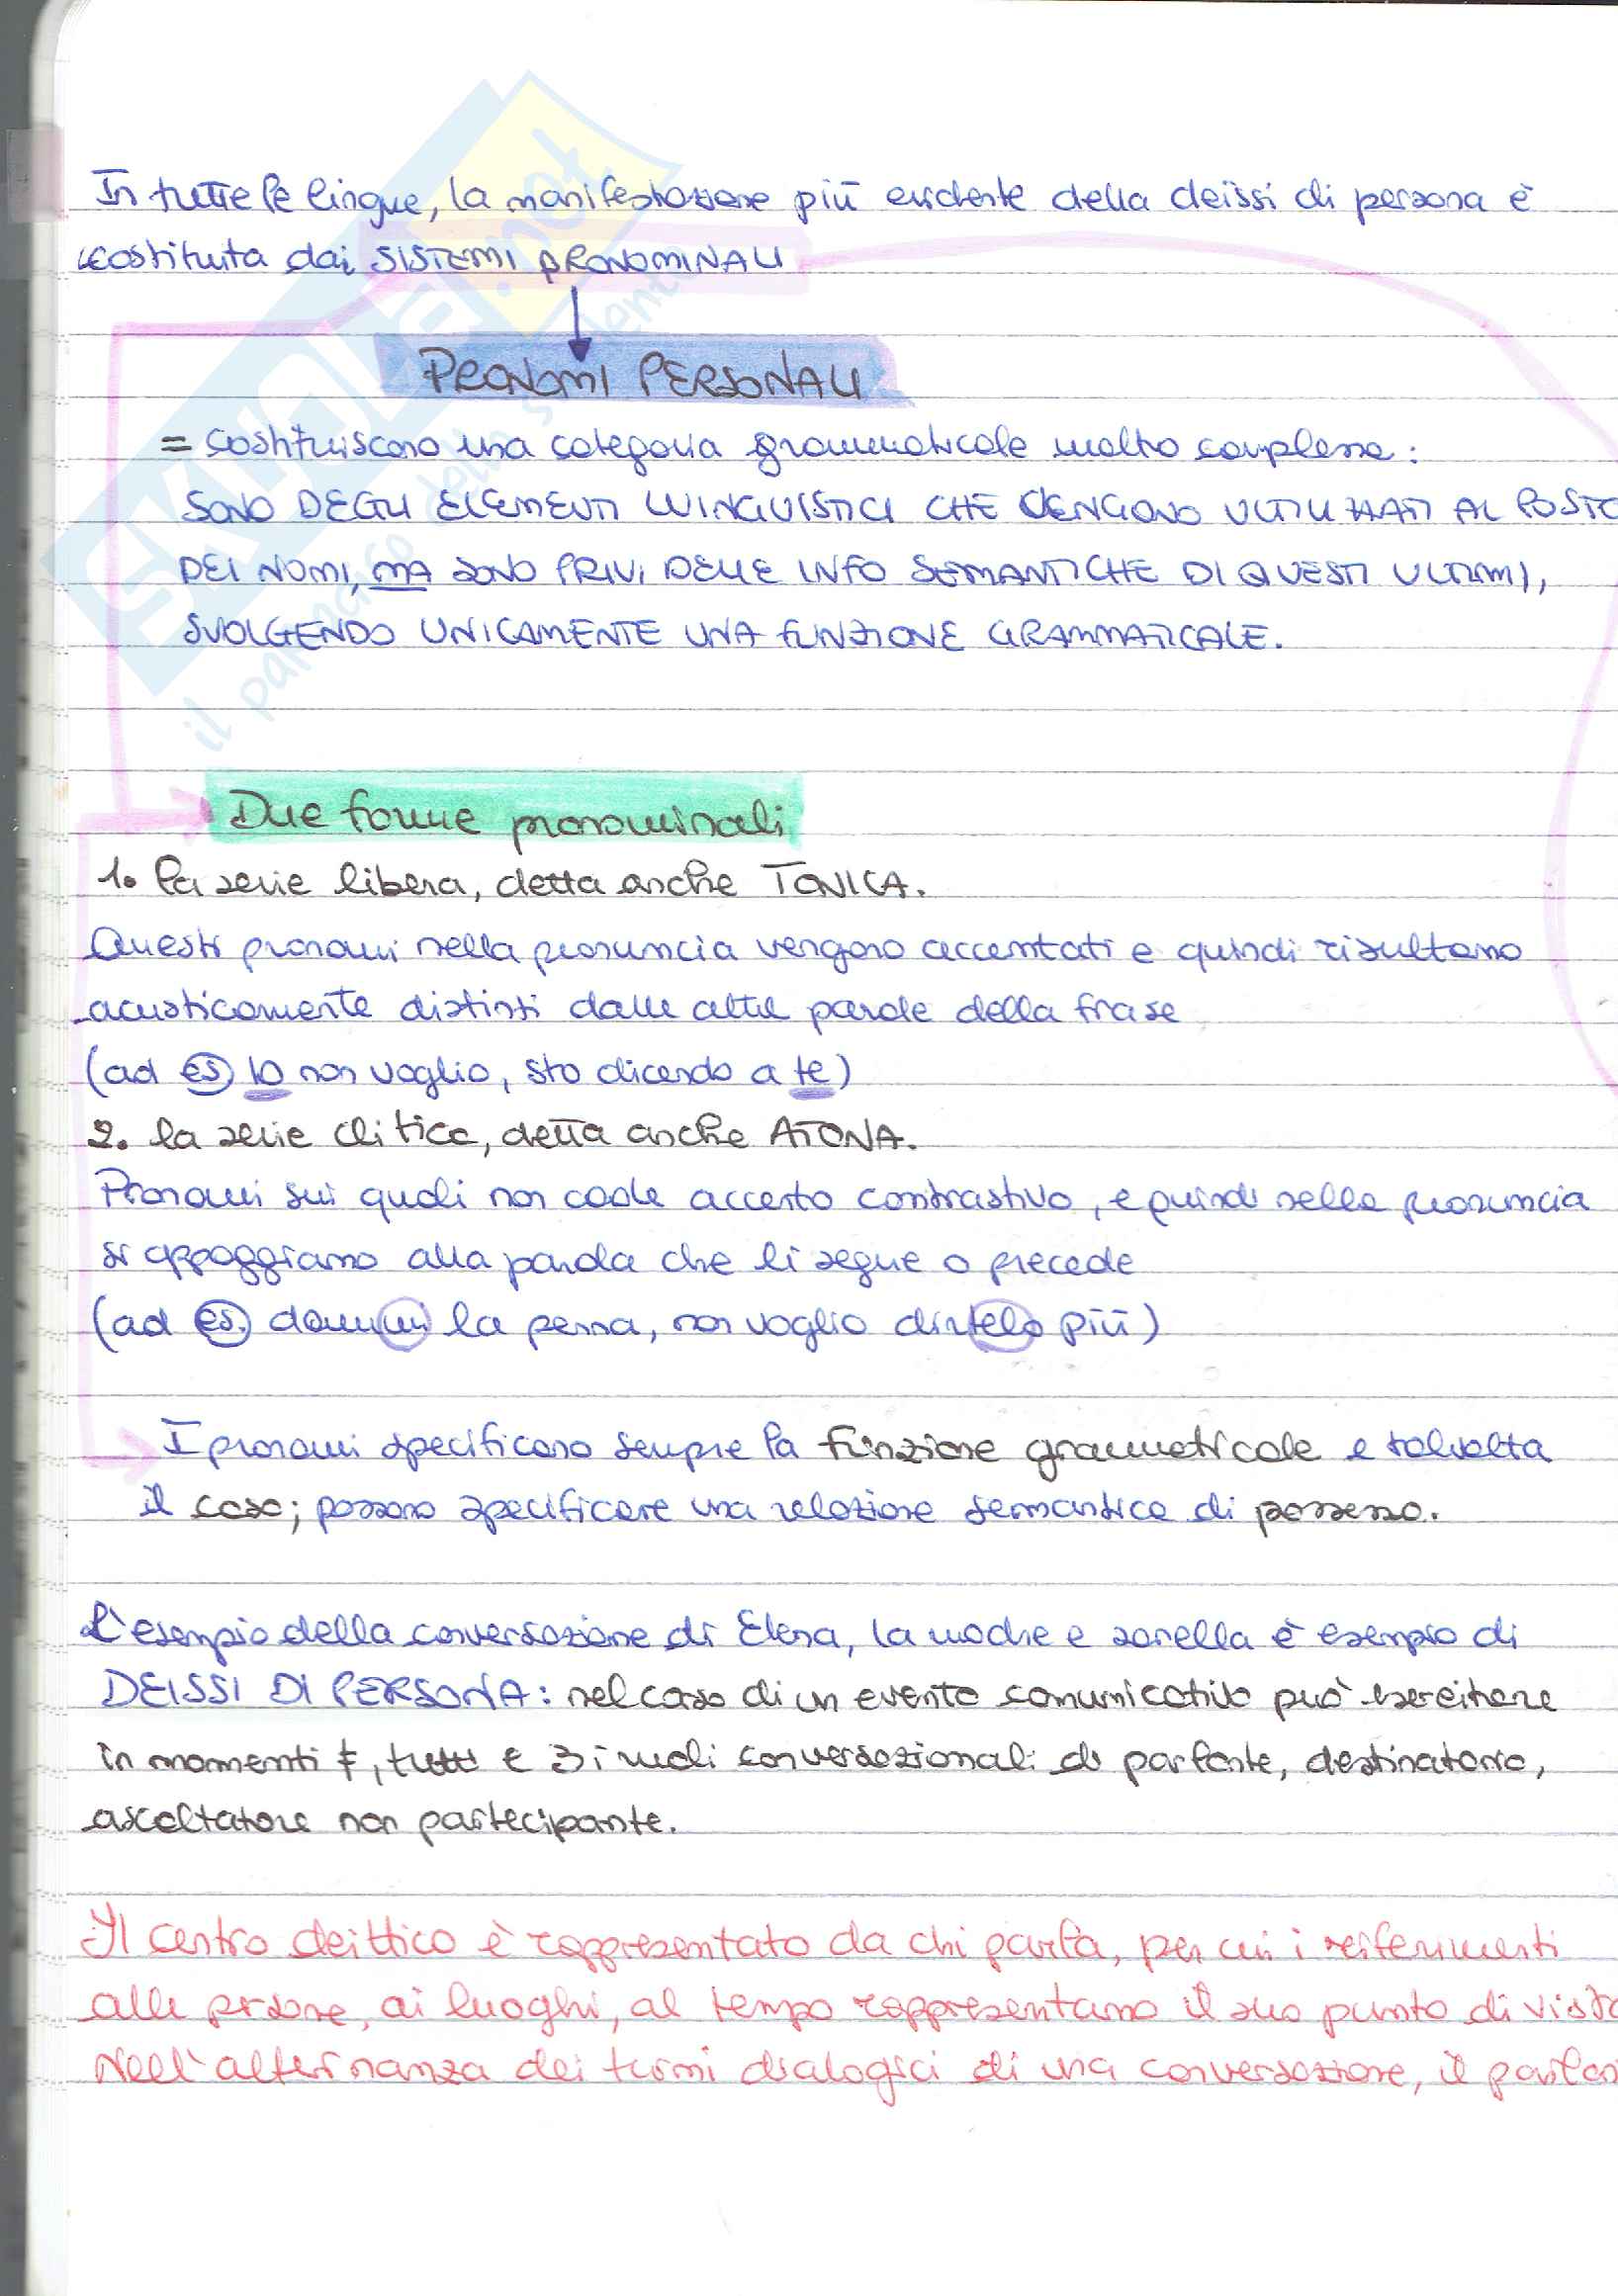 In tutte le lingue, la manifestazione più evidente della deissi di persona è
costituita dai SISTEMI PRONOMINALI
PRONOMI PERSONALI
= costituiscono una categoria grammaticale molto complessa:
SONO DEGLI ELEMENTI LINGUISTICI CHE VENGONO UTILIZZATI AL POSTO
DEI NOMI, MA SONO PRIVI DELLE INFO SEMANTICHE DI QUESTI ULTIMI,
SVOLGENDO UNICAMENTE UNA FUNZIONE GRAMMATICALE.
Due forme pronominali
1. la serie libera, detta anche TONICA.
Questi pronomi nella pronuncia vengono accentati e quindi risultano
acusticamente distinti dalle altre parole della frase
(ad es IO non voglio, sto dicendo a te)
2. la serie clitica, detta anche ATONA.
Pronomi sui quali non cade accento contrastivo, e quindi nella pronuncia
si appoggiano alla parola che li segue o precede
(ad es. dammi la penna, non voglio dirtelo più)
I pronomi specificano sempre la funzione grammaticale e talvolta
il caso; possono specificare una relazione semantica di possesso.
L'esempio della conversazione di Elena, la madre e sorella è esempio di
DEISSI DI PERSONA: nel caso di un evento comunicativo può esercitare
in momenti ≠, tutti e 3 i ruoli conversazionali di parlante, destinatario,
ascoltatore non partecipante.
Il centro deittico è rappresentato da chi parla, per cui i riferimenti
alle persone, ai luoghi, al tempo rappresentano il suo punto di vista
Nell'alternanza dei turni dialogici di una conversazione, il parlan
SKUOLA.net
il paradiso dello studente